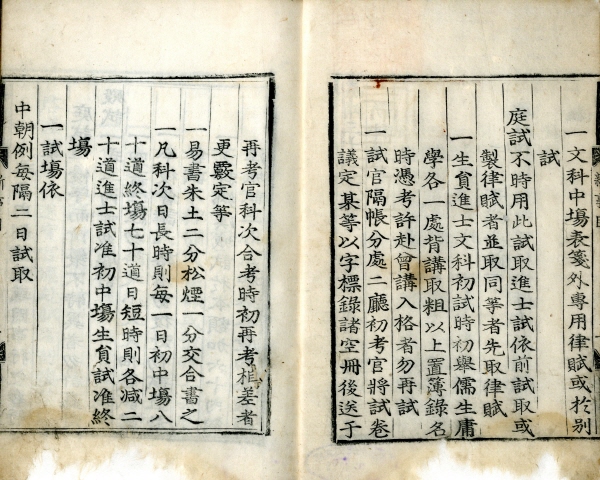 一文科中塲表箋外專用律賦或於別
試
庭試不時用此試取進士試依前試取或
製律賦者並取同等者先取律賦
一生貟進士文科初試時初舉儒生庸
學各一處背講取粗以上置簿錄名
時憑考許赴曾講入格者勿再試
一試官隔帳分處二廳初考官將試卷
議定某等以字標錄諸空冊後送于
再考官科次合考時初再考相差者
更覈定等
一易書朱土二分松煙一分交合書之
一凡科次日長時則每一日初中塲八
十道終塲七十道日短時則各减二
十道進士試准初中塲生貟試准終
塲
一試塲依
中朝例每隔二日試取